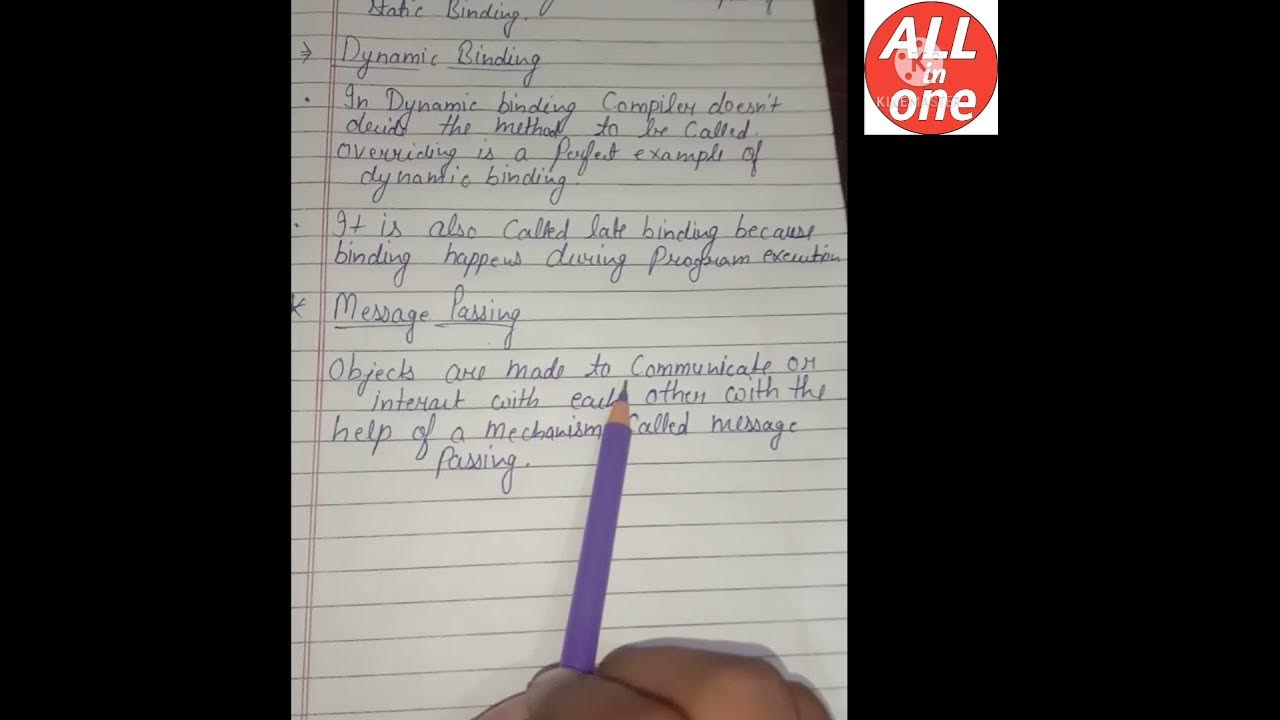 Static Binding.
⇒ Dynamic Binding
. In Dynamic binding Compiler doesn't
decide the method to be called.
overriding is a Perfect example of
dynamic binding.
. It is also called late binding because
binding happens during Program execution
* Message Passing
Objects are made to Communicate or
interact with each other with the
help of a mechanism called message
Passing.
ALL
in
one
KINEMASTER